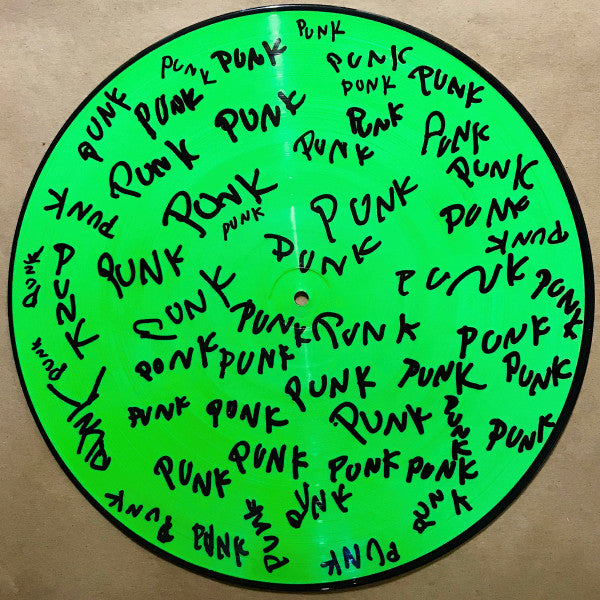 PUNK
PUNK PUNK PUNK
PUNK PUNK
PUNK PUNK PUNK PUNK PUNK
PUNK PUNK PUNK
PUNK PUNK PUNK
PUNK PUNK PUNK
PUNK PUNK PUNK
PUNK PUNK PUNK PUNK
PUNK PUNK PUNK PUNK
PUNK PUNK PUNK PUNK
PUNK PUNK PUNK PUNK
PUNK PUNK PUNK PUNK PUNK
PUNK PUNK PUNK PUNK
PUNK PUNK PUNK
PUNK PUNK PUNK
PUNK